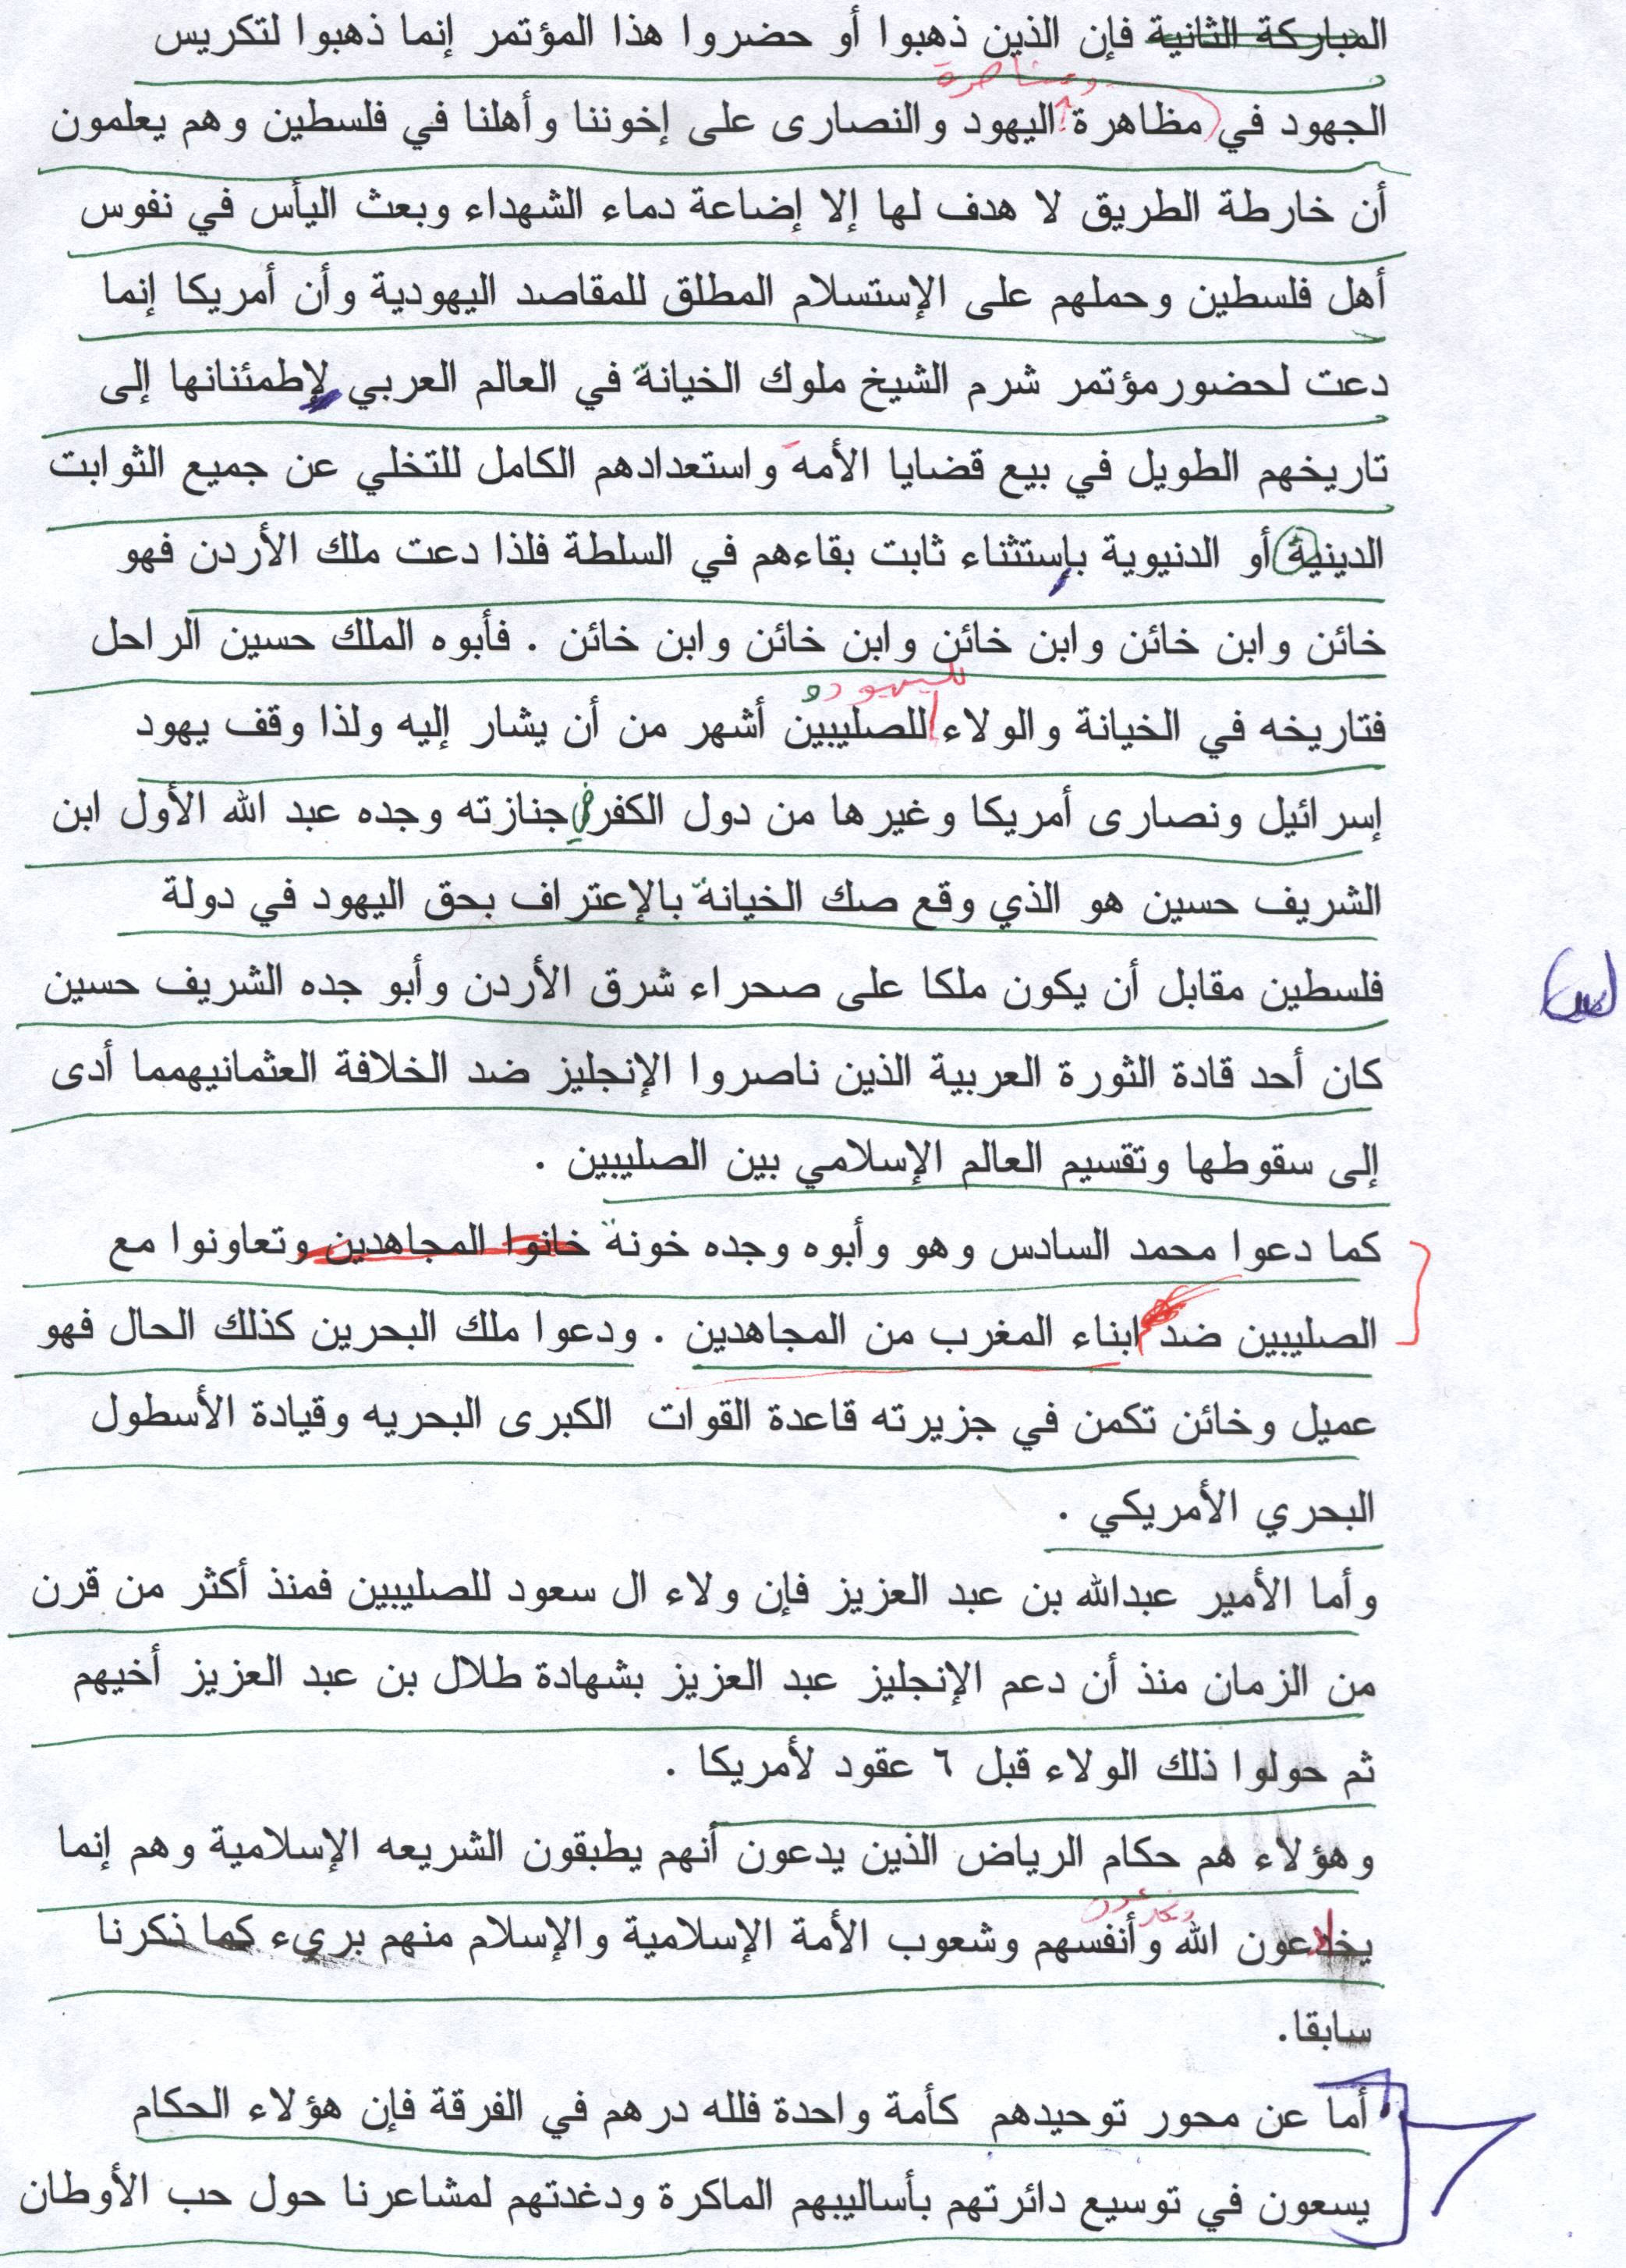 المباركة الثانية فإن الذين ذهبوا أو حضروا هذا المؤتمر إنما ذهبوا لتكريس
ومناصرة
الجهود في مظاهرة اليهود والنصارى على إخوننا وأهلنا في فلسطين وهم يعلمون
أن خارطة الطريق لا هدف لها إلا إضاعة دماء الشهداء وبعث اليأس في نفوس
أهل فلسطين وحملهم على الإستسلام المطلق للمقاصد اليهودية وأن أمريكا إنما
دعت لحضورمؤتمر شرم الشيخ ملوك الخيانة في العالم العربي لإطمئنانها إلى
تاريخهم الطويل في بيع قضايا الأمه واستعدادهم الكامل للتخلي عن جميع الثوابت
الدينية أو الدنيوية بإستثناء ثابت بقاءهم في السلطة فلذا دعت ملك الأردن فهو
خائن وابن خائن وابن خائن وابن خائن وابن خائن . فأبوه الملك حسين الراحل
لليهود و
فتاريخه في الخيانة والولاء للصليبين أشهر من أن يشار إليه ولذا وقف يهود
إسرائيل ونصارى أمريكا وغيرها من دول الكفر في جنازته وجده عبد الله الأول ابن
الشريف حسين هو الذي وقع صك الخيانة بالإعتراف بحق اليهود في دولة
فلسطين مقابل أن يكون ملكا على صحراء شرق الأردن وأبو جده الشريف حسين
كان أحد قادة الثورة العربية الذين ناصروا الإنجليز ضد الخلافة العثمانيهمما أدى
إلى سقوطها وتقسيم العالم الإسلامي بين الصليبين .
كما دعوا محمد السادس وهو وأبوه وجده خونة خانوا المجاهدين وتعاونوا مع
الصليبين ضد ابناء المغرب من المجاهدين . ودعوا ملك البحرين كذلك الحال فهو
عميل وخائن تكمن في جزيرته قاعدة القوات الكبرى البحريه وقيادة الأسطول
البحري الأمريكي .
وأما الأمير عبدالله بن عبد العزيز فإن ولاء ال سعود للصليبين فمنذ أكثر من قرن
من الزمان منذ أن دعم الإنجليز عبد العزيز بشهادة طلال بن عبد العزيز أخيهم
ثم حولوا ذلك الولاء قبل ٦ عقود لأمريكا .
وهؤلاء هم حكام الرياض الذين يدعون أنهم يطبقون الشريعه الإسلامية وهم إنما
يخادعون الله وأنفسهم وشعوب الأمة الإسلامية والإسلام منهم بريء كما ذكرنا
سابقا.
أما عن محور توحيدهم كأمة واحدة فلله درهم في الفرقة فإن هؤلاء الحكام
يسعون في توسيع دائرتهم بأساليبهم الماكرة ودغدتهم لمشاعرنا حول حب الأوطان